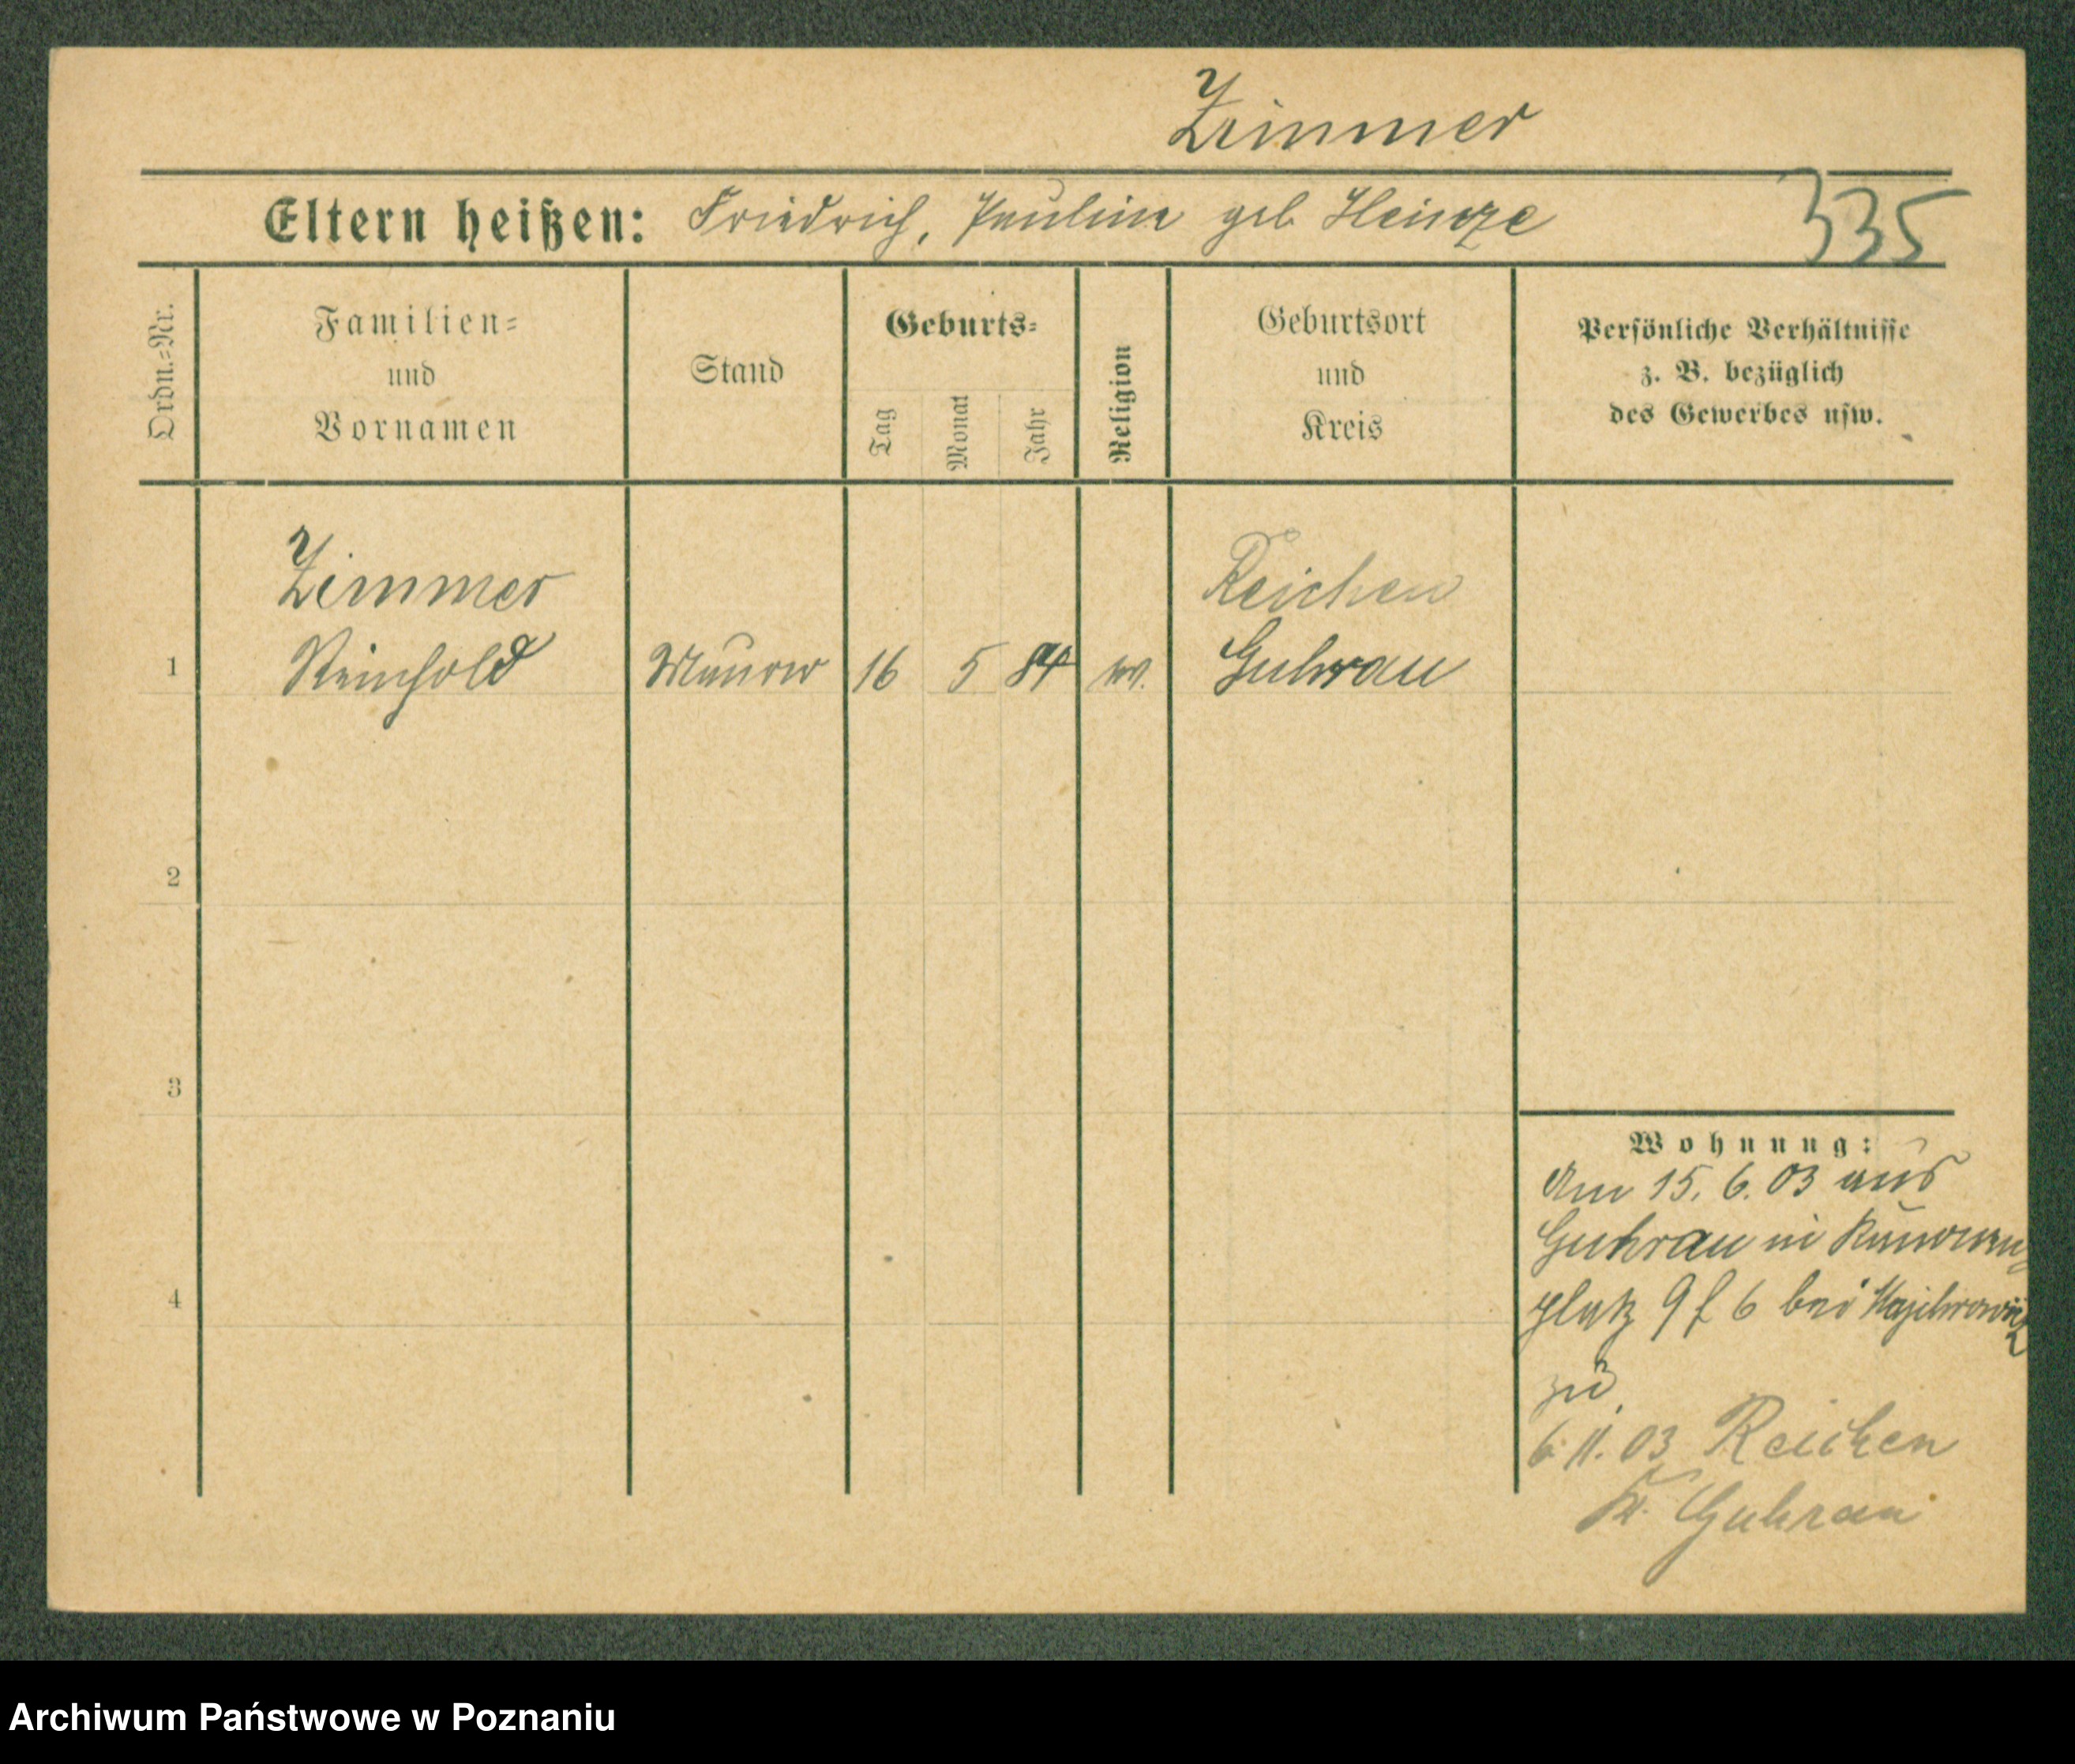 Zimmer
Eltern heißen: Friedrich, Pauline geb Heinze
335
Ordn.=Nr.
Familien=
und
Vornamen
Stand
Geburts=
Tag
Monat
Jahr
Religion
Geburtsort
und
Kreis
Persönliche Verhältnisse
z. B. bezüglich
des Gewerbes usw.
Zimmer
Reichen
1 Reinhold Maurer 16 5 84 ev. Guhrau
2
3
4
Wohnung:
Am 15. 6. 03 aus
Guhrau in
platz 9 f 6 bei
zu.
6. 11. 03 Reichen
K. Guhrau
Archiwum Państwowe w Poznaniu